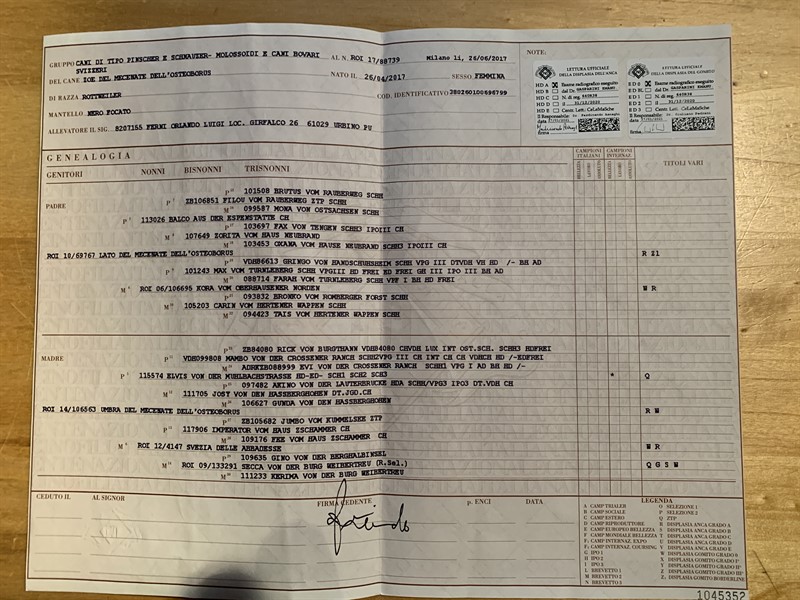 GRUPPO CANI DI TIPO PINSCHER E SCHNAUZER- MOLOSSOIDI E CANI BOVARI SVIZZERI
AL N. ROI 17/80739
Milano li, 26/06/2017
DEL CANE ZOE DEL MECENATE DELL'OSTEOBORUS
NATO IL 26/04/2017
SESSO FEMMINA
DI RAZZA ROTTWEILER
COD. IDENTIFICATIVO 380260100696799
MANTELLO NERO FOCATO
ALLEVATORE IL SIG. 8207155 FERNI ORLANDO LUIGI LOC. GIRFALCO 26 61029 URBINO PU
NOTE:
LETTURA UFFICIALE
DELLA DISPLASIA DELL'ANCA
LETTURA UFFICIALE
DELLA DISPLASIA DEL GOMITO
GENEALOGIA
GENITORI NONNI BISNONNI TRISNONNI
CAMPIONI ITALIANI
CAMPIONI INTERNAZ.
TITOLI VARI
101508 BRUTUS VOM RAUBERWEG SCHH
ZB106851 FILOU VOM RAUBERWEG ZTP SCHH
099587 MONA VOM OSTSACHSEN SCHH
PADRE
113026 BALCO AUS DER ESPENSTATTE CH
103697 FAX VON TENGEN SCHH3 IPOIII CH
107649 ZORITA VOM HAUS NEUBRAND
103453 OXANA VOM HAUSE NEUBRAND SCHH3 IPOIII CH
ROI 10/69767 LATO DEL MECENATE DELL'OSTEOBORUS
R Z1
VDHB6613 GRINGO VON HANDSCHUHSHEIM SCHH VPG III DTVDH VH HD /- BH AD
101243 MAX VOM TURNLEBERG SCHH VPGIII HD FREI ED FREI GH III IPO III BH AD
088714 FARAH VOM TURNLEBERG SCHH VPF I BH HD FREI
ROI 06/106695 KORA VOM OBERHAUSENER NORDEN
W R
093832 BRONKO VOM ROMBERGER FORST SCHH
105203 CARIN VOM HERTENER WAPPEN SCHH
094423 TAIS VOM HERTENER WAPPEN SCHH
ZB84080 RICK VON BURGTHANN VDH84080 CHVDH LUX INT OST.SCH. SCHH3 HDFREI
MADRE
VDH099808 MAMBO VON DER CROSSENER RANCH SCHHZVPG III CH INT CH CH VDHCH HD /-EDFREI
ADRKZB088999 EVI VON DER CROSSENER RANCH SCHH1 VPG I AD BH HD /-
115574 ELVIS VON DER MUHLBACHSTRASSE HD-ED- SCH1 SCH2 SCH3
* Q
097482 AKINO VON DER LAUTERBRUCKE HDA SCHH/VPG3 IPO3 DT.VDH CH
111705 JOST VON DEN HASSBERGHOHEN DT.JGD.CH
106627 GUNDA VON DEN HASSBERGHOHEN
ROI 14/106563 UMBRA DEL MECENATE DELL'OSTEOBORUS
R W
ZB105682 JUMBO VOM KUMMELSEE ZTP
117906 IMPERATOR VOM HAUS ZSCHAMMER CH
109176 FEE VOM HAUS ZSCHAMMER CH
ROI 12/4147 SVEZIA DELLE ABBADESSE
W R
109635 GINO VON DER BERGHALBINSEL
ROI 09/133291 SECCA VON DER BURG WEIBERTREU (R.Sel.)
Q G S W
111233 KERIMA VON DER BURG WEIBERTREU
CEDUTO IL
AL SIGNOR
FIRMA CEDENTE
p. ENCI
DATA
LEGENDA
A CAMP TRIALER
B CAMP SOCIALE
C CAMP ESTERO
D CAMP RIPRODUTTORE
E CAMP EUROPEO BELLEZZA
F CAMP MONDIALE BELLEZZA
G IPO 1
H IPO 2
I IPO 3
L BREVETTO 1
M BREVETTO 2
N BREVETTO 3
O SELEZIONE 1
P SELEZIONE 2
Q ZTP
R DISPLASIA ANCA GRADO A
S DISPLASIA ANCA GRADO B
T DISPLASIA ANCA GRADO C
U DISPLASIA ANCA GRADO D
V DISPLASIA ANCA GRADO E
W DISPLASIA GOMITO GRADO 0
1045352